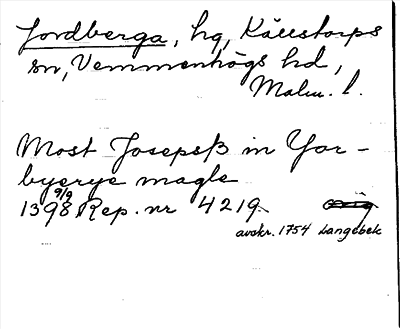 Jordberga, hg, Källstorps
sn, Vemmenhögs hd,
Malm. l.
Most Josepsß in Yor-
byerye magle
9/9
1398 Rep. nr 4219.
avskr. 1754 Langebek